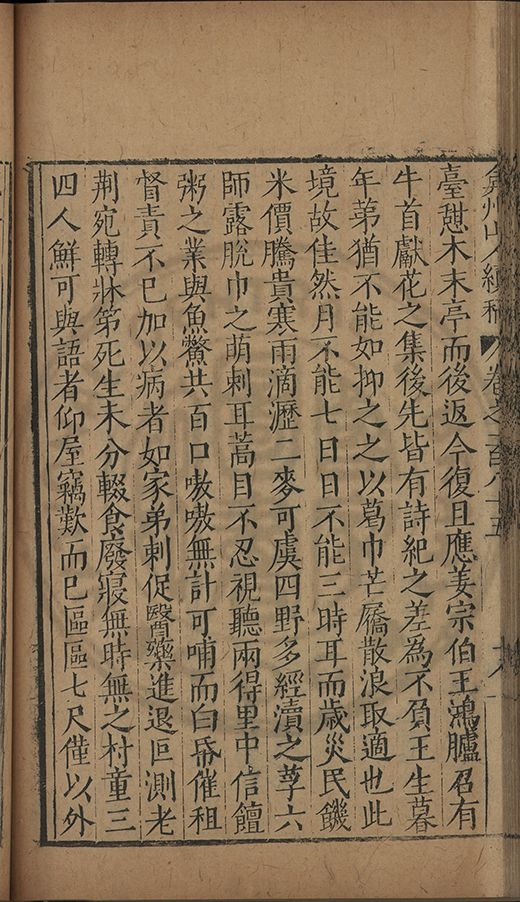 弇州山人續稿 卷之一百八十五
臺憇木末亭而後返今復且應姜宗伯王鴻臚召有
牛首獻花之集後先皆有詩紀之差為不負王生暮
年苐猶不能如抑之之以葛巾芒屩散浪取適也此
境故佳然月不能七日日不能三時耳而歲災民饑
米價騰貴寒雨滴瀝二麥可虞四野多經瀆之莩六
師露脫巾之萌刺耳蒿目不忍視聽兩得里中信饘
粥之業與魚鱉共百口嗷嗷無計可哺而白帋催租
督責不已加以病者如家弟刺促醫藥進退叵測老
荊宛轉牀笫死生未分輟食廢寢無時無之村童三
四人鮮可與語者仰屋竊歎而已區區七尺僅以外